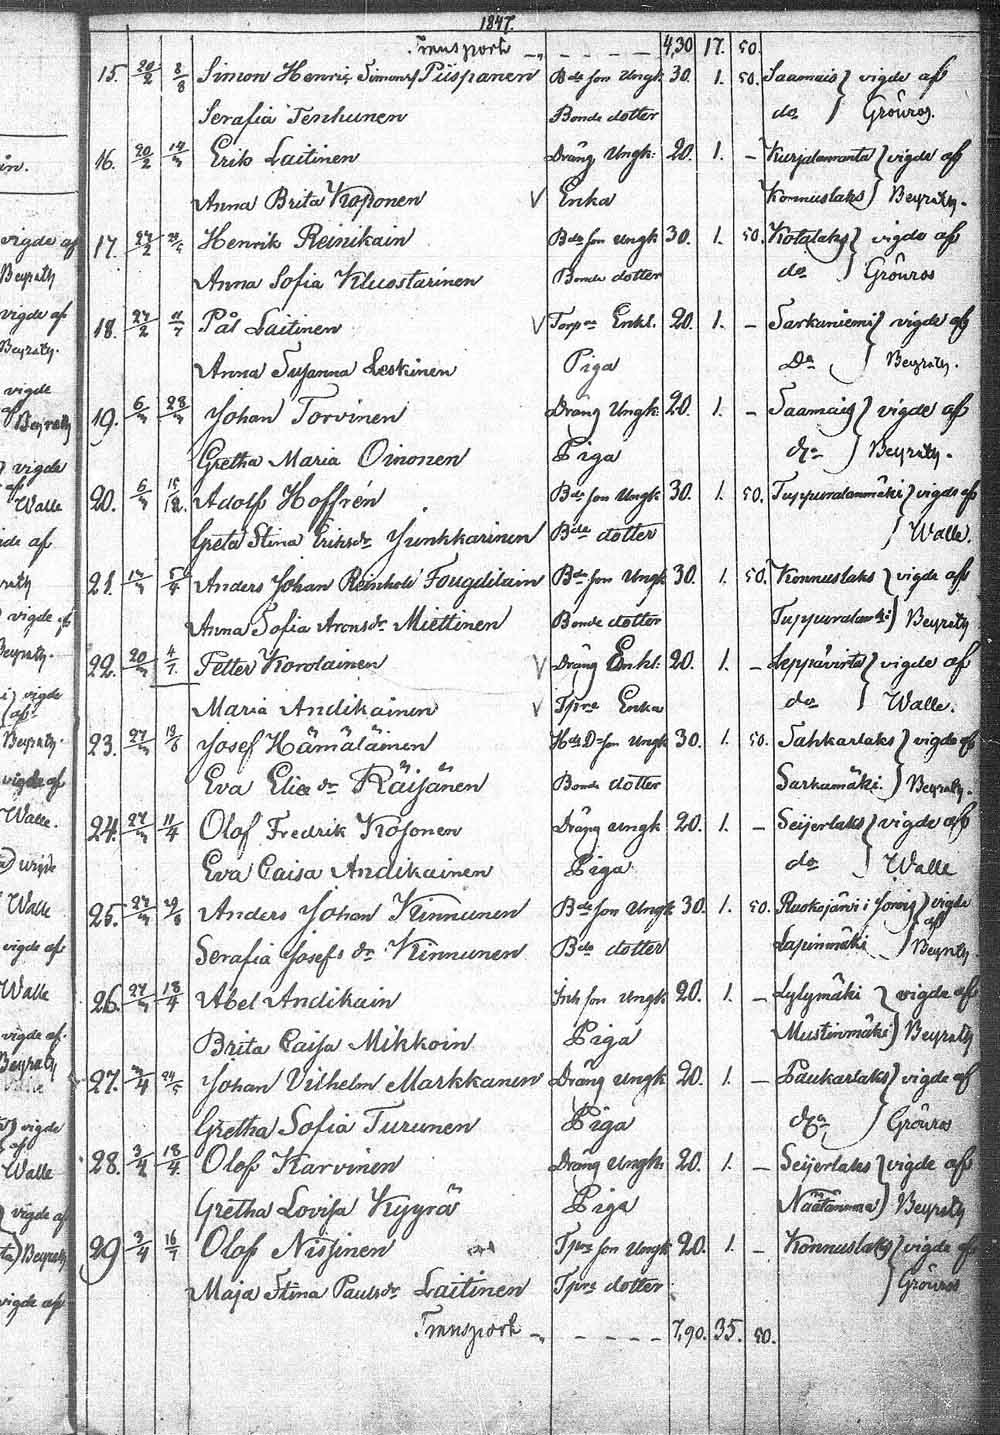 1847.
Transport „ - - - - 4,30 17. 50.
15. 20/2 8/8 Simon Henric Simonss Piispanen Bde son Ungk 30. 1. 50. Saamais } vigde af
Serafia Tenhunen Bonde dotter do } Gröuros.
16. 20/2 Erik Laitinen Dräng Ungk: 20. 1. – Kurjalanranta } vigde af
Anna Brita Koponen V Enka Konnuslaks } Beyrath.
17. 27/2 Henrik Reinikain Bde son Ungk 30. 1. 50. Kotalaks } vigde af
Anna Sofia Kluostarinen Bonde dotter do } Gröuros
18. 27/2 11/7 Pål Laitinen V Torpre Enkl. 20. 1. – Sarkaniemi } vigde af
Anna Susanna Leskinen Piga Do } Beyrath.
19. 6/3 28/3 Johan Torvinen Dräng Ungk: 20. 1. – Saamais } vigde af
Gretha Maria Oinonen Piga do } Beyrath.
20. 6/3 15/12. Adolf Hoffrén Bde son Ungk 30. 1. 50. Tuppuralanmäki } vigde af
Greta Stina Eriksdr Junkkarinen Bde dotter } Walle.
21. 5/4 Anders Johan Reinhold Fougdilain Bde son Ungk 30. 1. 50. Konnuslaks } vigde af
Anna Sofia Aronsdr Miettinen Bonde dotter } Beyrath
22. 20/3 4/7. Petter Korolainen V Dräng Enkl: 20. 1. – Leppävirta } vigde af
Maria Andikainen V Tpre Enka do } Walle.
23. 27/3 Josef Hämäläinen Ungk 30. 1. 50. Sahkarlaks } vigde af
Eva Elia dr Räisänen Bonde dotter Sarkamäki } Beyrath.
24. 27/3 11/4 Olof Fredrik Kosonen Dräng Ungk 20. 1. – Seijerlaks } vigde af
Eva Caisa Andikainen Piga do } Walle
25. 27/3 29/8 Anders Johan Kinnunen Bde son Ungk 30. 1. 50. Raskojärvi i Jorois } vigde af
Serafia Josefs dr Kinnunen Bde dotter Lapinmäki } Beyrath
26. 27/3 18/4 Abel Andikain Inh son Ungk 20. 1. – Lylymäki } vigde af
Brita Caisa Mikkoin Piga Mustinmäki } Beyrath
27. Johan Vilhelm Markkanen Dräng Ungk 20. 1. – Paukarlaks } vigde af
Gretha Sofia Turunen Piga do } Gröuros
28. 3/4 18/4 Olof Karvinen Dräng Ungk: 20. 1. – Seijerlaks } vigde af
Gretha Lovisa Kyyrä Piga Näätänmaa } Beyrath
29 3/4 16/7 Olof Nissinen Tpre son Ungk 20. 1. – Konnuslaks } vigde af
Maja Stina Paulsdr Laitinen Tpre dotter } Gröuros
Transport „ - - - - 7,90. 35. 50.